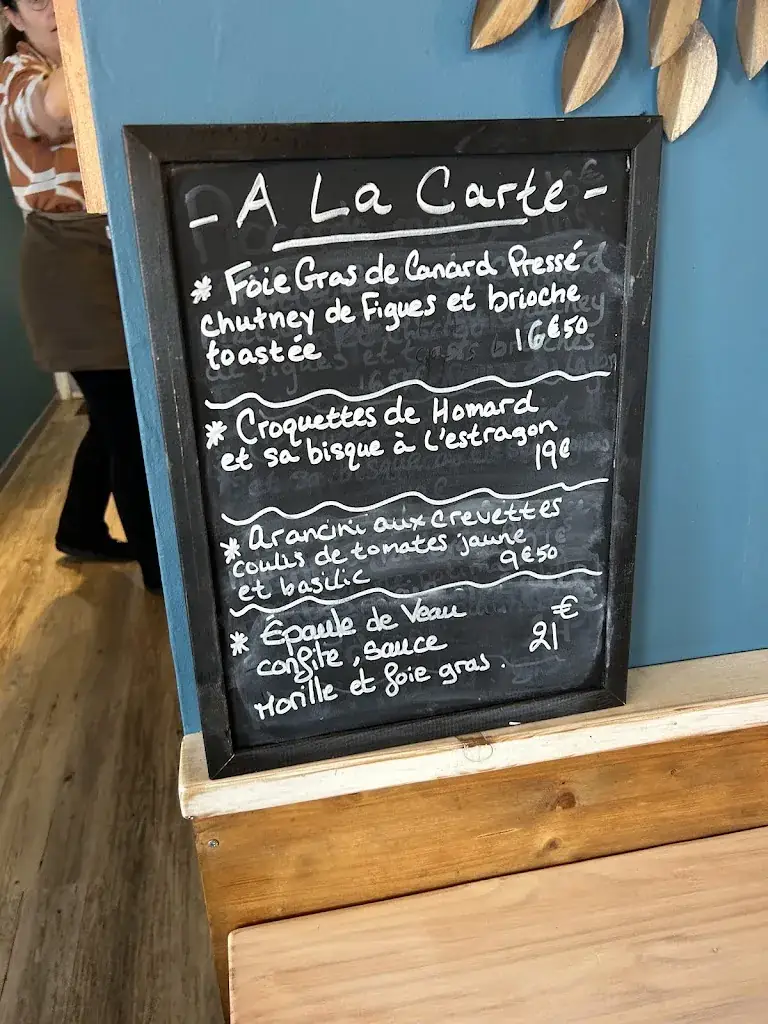 - A La Carte -
* Foie Gras de Canard Pressé
chutney de Figues et brioche
toastée 16€50
* Croquettes de Homard
et sa bisque à l'estragon
19€
* Arancini aux crevettes
coulis de tomates jaune
et basilic 9€50
* Épaule de Veau €
confite, sauce 21
Morille et foie gras.